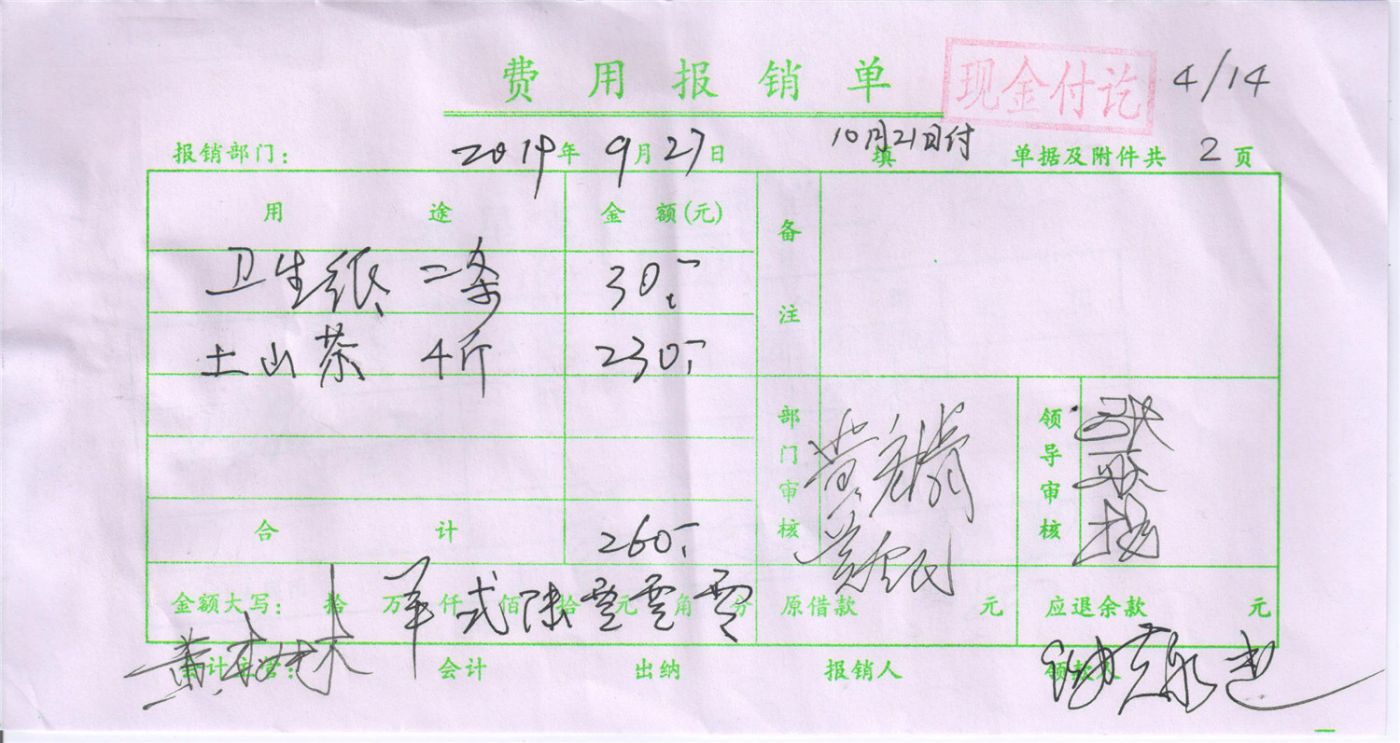 费用报销单 现金付讫 4/14
报销部门： 2019年 9月27日 10月21日付 填 单据及附件共 2 页
用途 金额(元) 备注
卫生纸 二条 30.-
土山茶 4斤 230.-
部门审核 领导审核
合计 260.-
金额大写： 拾 万 仟 佰 拾 元 角 分 弍陆零零零 原借款 元 应退余款 元
会计主管： 会计 出纳 报销人 领款人